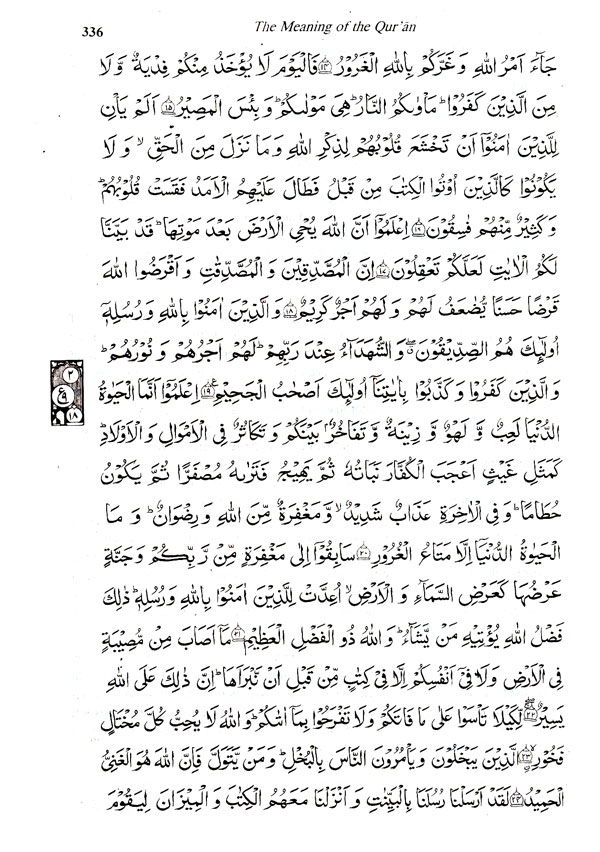 336
The Meaning of the Qur'ān
جَآءَ اَمْرُ اللّٰهِ وَ غَرَّكُمْ بِاللّٰهِ الْغَرُوْرُ ﴿۱۴﴾ فَالْيَوْمَ لَا يُؤْخَذُ مِنْكُمْ فِدْيَةٌ وَّ لَا
مِنَ الَّذِيْنَ كَفَرُوْا ؕ مَاْوٰىكُمُ النَّارُ ؕ هِيَ مَوْلٰىكُمْ ؕ وَ بِئْسَ الْمَصِيْرُ ﴿۱۵﴾ اَلَمْ يَاْنِ
لِلَّذِيْنَ اٰمَنُوْۤا اَنْ تَخْشَعَ قُلُوْبُهُمْ لِذِكْرِ اللّٰهِ وَ مَا نَزَلَ مِنَ الْحَقِّ ۙ وَ لَا
يَكُوْنُوْا كَالَّذِيْنَ اُوْتُوا الْكِتٰبَ مِنْ قَبْلُ فَطَالَ عَلَيْهِمُ الْاَمَدُ فَقَسَتْ قُلُوْبُهُمْ ؕ
وَ كَثِيْرٌ مِّنْهُمْ فٰسِقُوْنَ ﴿۱۶﴾ اِعْلَمُوْۤا اَنَّ اللّٰهَ يُحْيِ الْاَرْضَ بَعْدَ مَوْتِهَا ؕ قَدْ بَيَّنَّا
لَكُمُ الْاٰيٰتِ لَعَلَّكُمْ تَعْقِلُوْنَ ﴿۱۷﴾ اِنَّ الْمُصَّدِّقِيْنَ وَ الْمُصَّدِّقٰتِ وَ اَقْرَضُوا اللّٰهَ
قَرْضًا حَسَنًا يُّضٰعَفُ لَهُمْ وَ لَهُمْ اَجْرٌ كَرِيْمٌ ﴿۱۸﴾ وَ الَّذِيْنَ اٰمَنُوْا بِاللّٰهِ وَ رُسُلِهٖۤ
اُولٰٓئِكَ هُمُ الصِّدِّيْقُوْنَ ۖۗ وَ الشُّهَدَآءُ عِنْدَ رَبِّهِمْ ؕ لَهُمْ اَجْرُهُمْ وَ نُوْرُهُمْ ؕ
وَ الَّذِيْنَ كَفَرُوْا وَ كَذَّبُوْا بِاٰيٰتِنَاۤ اُولٰٓئِكَ اَصْحٰبُ الْجَحِيْمِ ﴿۱۹﴾ اِعْلَمُوْۤا اَنَّمَا الْحَيٰوةُ
۲
ع
۱۸
الدُّنْيَا لَعِبٌ وَّ لَهْوٌ وَّ زِيْنَةٌ وَّ تَفَاخُرٌۢ بَيْنَكُمْ وَ تَكَاثُرٌ فِي الْاَمْوَالِ وَ الْاَوْلَادِ ؕ
كَمَثَلِ غَيْثٍ اَعْجَبَ الْكُفَّارَ نَبَاتُهٗ ثُمَّ يَهِيْجُ فَتَرٰىهُ مُصْفَرًّا ثُمَّ يَكُوْنُ
حُطَامًا ؕ وَ فِي الْاٰخِرَةِ عَذَابٌ شَدِيْدٌ ۙ وَّ مَغْفِرَةٌ مِّنَ اللّٰهِ وَ رِضْوَانٌ ؕ وَ مَا
الْحَيٰوةُ الدُّنْيَاۤ اِلَّا مَتَاعُ الْغُرُوْرِ ﴿۲۰﴾ سَابِقُوْۤا اِلٰى مَغْفِرَةٍ مِّنْ رَّبِّكُمْ وَ جَنَّةٍ
عَرْضُهَا كَعَرْضِ السَّمَآءِ وَ الْاَرْضِ ۙ اُعِدَّتْ لِلَّذِيْنَ اٰمَنُوْا بِاللّٰهِ وَ رُسُلِهٖ ؕ ذٰلِكَ
فَضْلُ اللّٰهِ يُؤْتِيْهِ مَنْ يَّشَآءُ ؕ وَ اللّٰهُ ذُو الْفَضْلِ الْعَظِيْمِ ﴿۲۱﴾ مَاۤ اَصَابَ مِنْ مُّصِيْبَةٍ
فِي الْاَرْضِ وَ لَا فِيْۤ اَنْفُسِكُمْ اِلَّا فِيْ كِتٰبٍ مِّنْ قَبْلِ اَنْ نَّبْرَاَهَا ؕ اِنَّ ذٰلِكَ عَلَى اللّٰهِ
يَسِيْرٌ ﴿۲۲﴾ لِّكَيْلَا تَاْسَوْا عَلٰى مَا فَاتَكُمْ وَ لَا تَفْرَحُوْا بِمَاۤ اٰتٰىكُمْ ؕ وَ اللّٰهُ لَا يُحِبُّ كُلَّ مُخْتَالٍ
فَخُوْرِ ﴿۲۳﴾ اِۨلَّذِيْنَ يَبْخَلُوْنَ وَ يَاْمُرُوْنَ النَّاسَ بِالْبُخْلِ ؕ وَ مَنْ يَّتَوَلَّ فَاِنَّ اللّٰهَ هُوَ الْغَنِيُّ
الْحَمِيْدُ ﴿۲۴﴾ لَقَدْ اَرْسَلْنَا رُسُلَنَا بِالْبَيِّنٰتِ وَ اَنْزَلْنَا مَعَهُمُ الْكِتٰبَ وَ الْمِيْزَانَ لِيَقُوْمَ